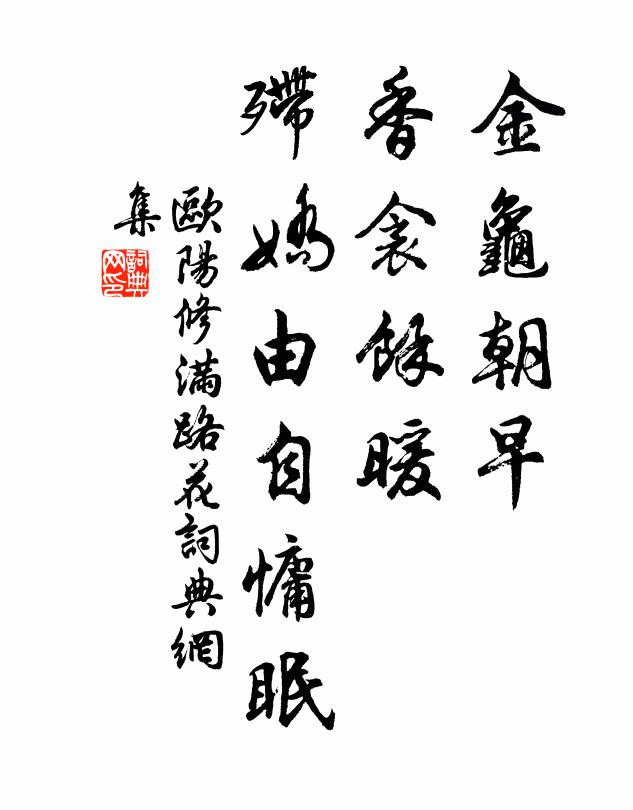 金龜朝早
香衾餘暖
殢嬌由自慵眠
歐陽修滿路花詞典網
集
詞典網印